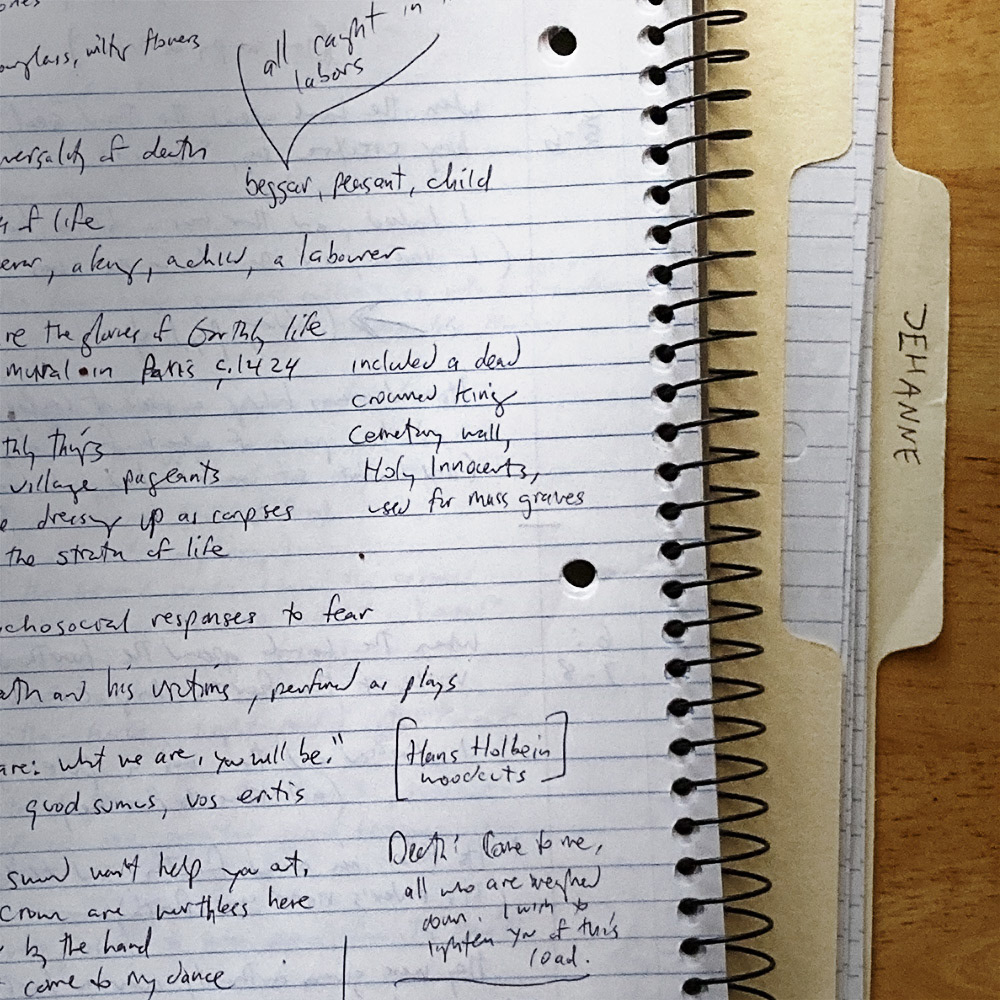 all caught in
labors
hourglass, wilty flowers
versality of death
beggar, peasant, child
of life
a king, a child, a labourer
re the glories of Earthly life
mural in Paris c.1424
included a dead
crowned king
cemetery wall,
Holy Innocents,
used for mass graves
thly things
village pageants
e dressing up as corpses
the strata of life
chosocial responses to fear
ath and his victims, performed as plays
are: what we are, you will be."
quod sumus, vos eritis
[Hans Holbein
woodcuts]
sword won't help you out,
crown are worthless here
by the hand
come to my dance
Death: Come to me,
all who are weighed
down. I wish to
lighten you of this
load.
JEHANNE